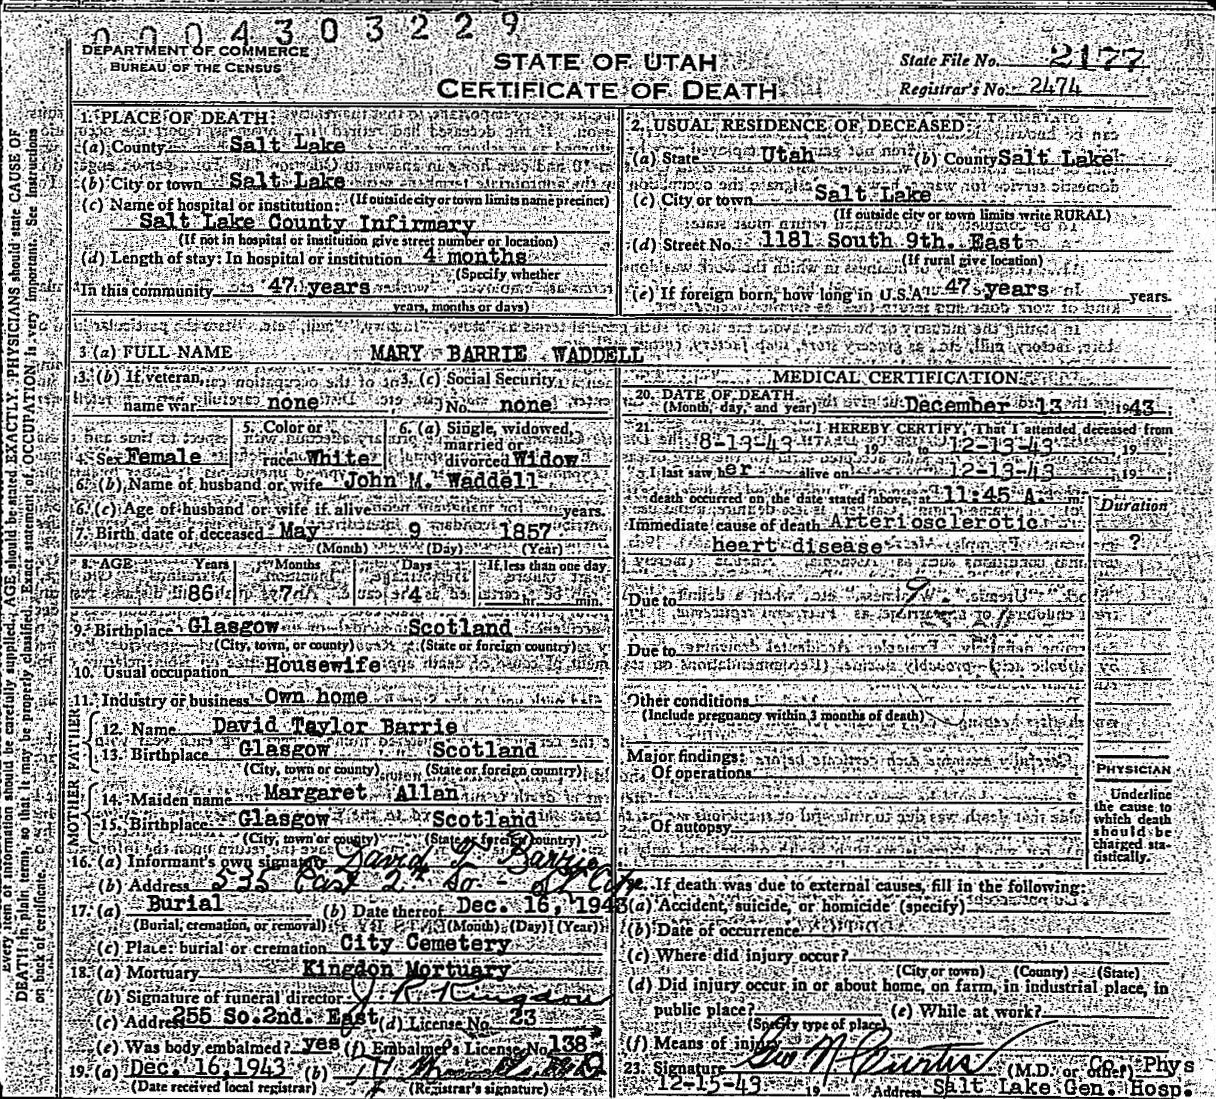 0004303229
DEPARTMENT OF COMMERCE
BUREAU OF THE CENSUS
STATE OF UTAH
CERTIFICATE OF DEATH
State File No. 2177
Registrar's No. 2474
Every item of information should be carefully supplied. AGE should be stated EXACTLY. PHYSICIANS should state CAUSE OF
DEATH in plain terms, so that it may be properly classified. Exact statement of OCCUPATION is very important. See Instructions
on back of certificate.
1. PLACE OF DEATH:
(a) County Salt Lake
(b) City or town Salt Lake
(If outside city or town limits name precinct)
(c) Name of hospital or institution:
Salt Lake County Infirmary
(If not in hospital or institution give street number or location)
(d) Length of stay: In hospital or institution 4 months
(Specify whether
In this community 47 years
years, months or days)
2. USUAL RESIDENCE OF DECEASED:
(a) State Utah (b) County Salt Lake
(c) City or town Salt Lake
(If outside city or town limits write RURAL)
(d) Street No. 1181 South 9th. East
(If rural give location)
(e) If foreign born, how long in U.S.A. 47 years years.
3 (a) FULL NAME MARY BARRIE WADDELL
3. (b) If veteran, name war none
3. (c) Social Security No. none
4. Sex Female
5. Color or race White
6. (a) Single, widowed, married or divorced Widow
6. (b) Name of husband or wife John M. Waddell
6. (c) Age of husband or wife if alive years.
7. Birth date of deceased May 9 1857
(Month) (Day) (Year)
8. AGE Years Months Days If less than one day
86 7 4 hr. min.
9. Birthplace Glasgow Scotland
(City, town, or county) (State or foreign country)
10. Usual occupation Housewife
11. Industry or business Own home
FATHER
12. Name David Taylor Barrie
13. Birthplace Glasgow Scotland
(City, town or county) (State or foreign country)
MOTHER
14. Maiden name Margaret Allan
15. Birthplace Glasgow Scotland
(City, town or county) (State or foreign country)
16. (a) Informant's own signature David T. Barrie
(b) Address 535 East 2nd So - SL City
17. (a) Burial (b) Date thereof Dec. 16, 1943
(Burial, cremation, or removal) (Month) (Day) (Year)
(c) Place: burial or cremation City Cemetery
18. (a) Mortuary Kingdon Mortuary
(b) Signature of funeral director J. R. Kingdon
(c) Address 255 So.2nd. East (d) License No. 23
(e) Was body embalmed? yes (f) Embalmer's License No. 138
19. (a) Dec. 16,1943 (b)
(Date received local registrar) (Registrar's signature)
MEDICAL CERTIFICATION
20. DATE OF DEATH
(Month, day, and year) December 13 1943
21. I HEREBY CERTIFY, That I attended deceased from
8-13-43 19 to 12-13-43 19
I last saw her alive on 12-13-43 19
death occurred on the date stated above, 11:45 A. m.
Duration
Immediate cause of death Arteriosclerotic
heart disease ?
Due to
Due to
Other conditions
(Include pregnancy within 3 months of death)
Major findings:
Of operations
Of autopsy
PHYSICIAN
Underline
the cause to
which death
should be
charged sta-
tistically.
22. If death was due to external causes, fill in the following:
(a) Accident, suicide, or homicide (specify)
(b) Date of occurrence
(c) Where did injury occur?
(City or town) (County) (State)
(d) Did injury occur in or about home, on farm, in industrial place, in
public place? (e) While at work?
(Specify type of place)
(f) Means of injury
23. Signature Geo N Curtis (M.D. or other) Co. Phys
12-15-43 19 Address Salt Lake Gen. Hosp.